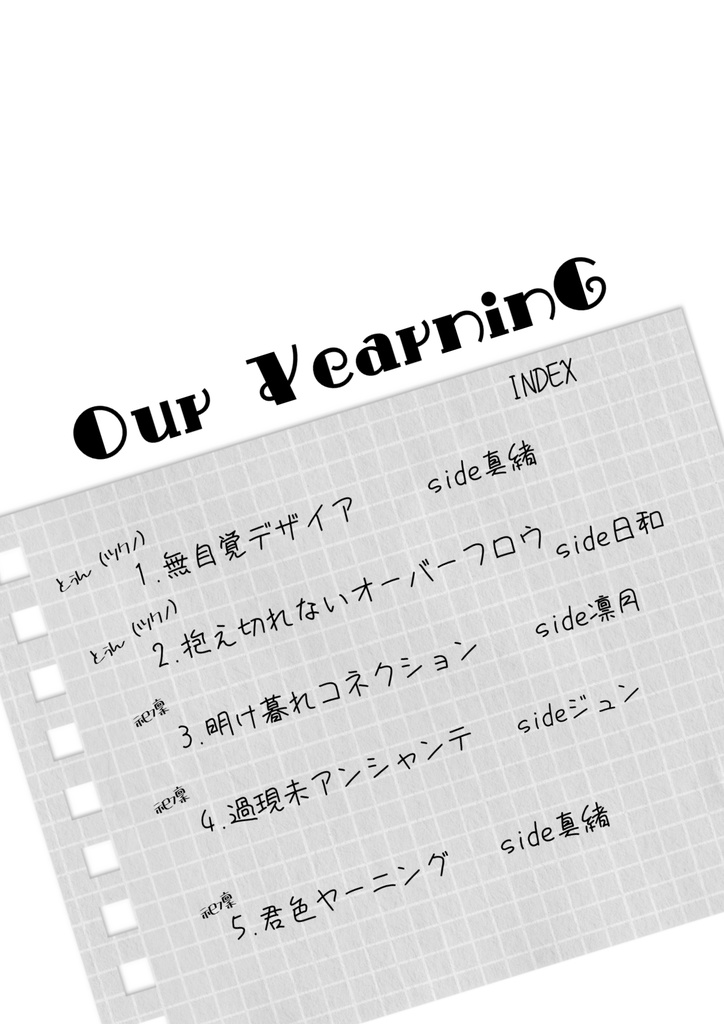 Our Yearning
INDEX
とうん (ツクノ) 1.無自覚デザイア side真緒
とうん (ツクノ) 2.抱え切れないオーバーフロウ side日和
祀凛 3.明け暮れコネクション side凛月
祀凛 4.過現未アンシャンテ sideジュン
祀凛 5.君色ヤーニング side真緒